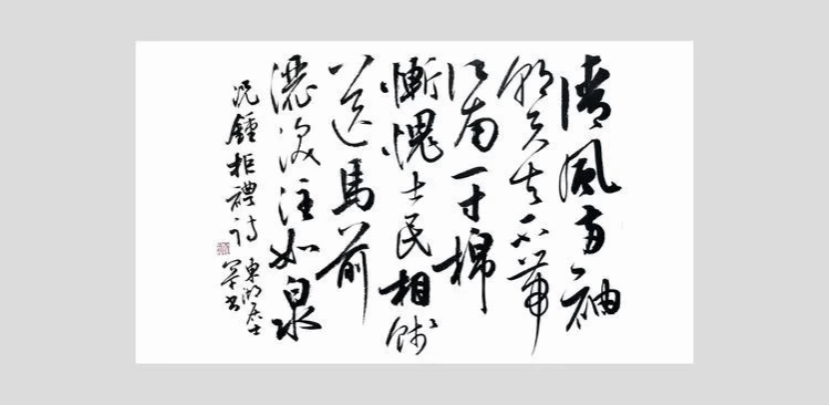 清風兩袖
朝天去不帶
江南一寸棉
慚愧士民相餞
送馬前
灑淚注如泉
況鍾拒禮詩
東湖居士